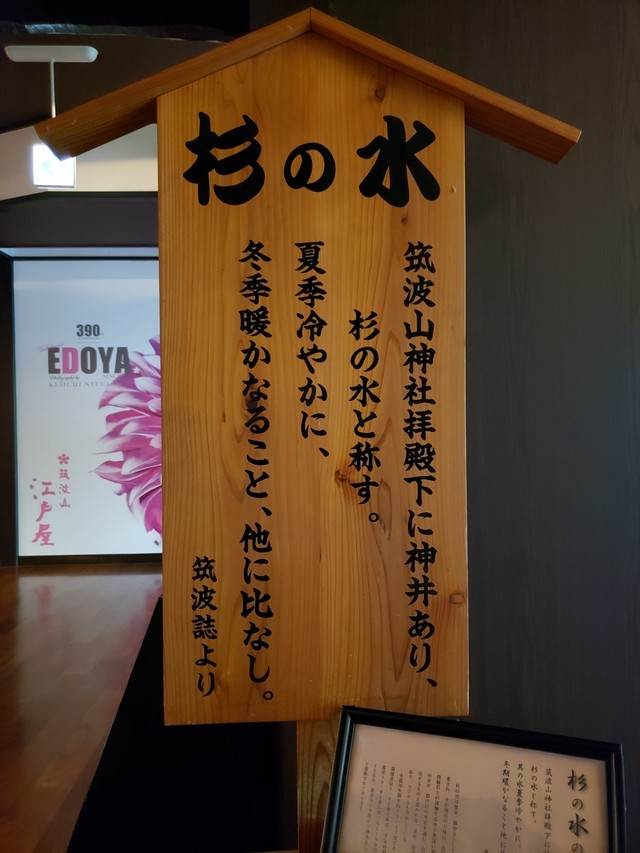 杉の水
筑波山神社拝殿下に神井あり、
杉の水と称す。
夏季冷やかに、
冬季暖かなること、他に比なし。
筑波誌より
390
EDOYA
筑波山
江戸屋
杉の水の
筑波山神社拝殿下に
杉の水と称す。
其の水夏季冷やかに、
冬期暖かなること他に